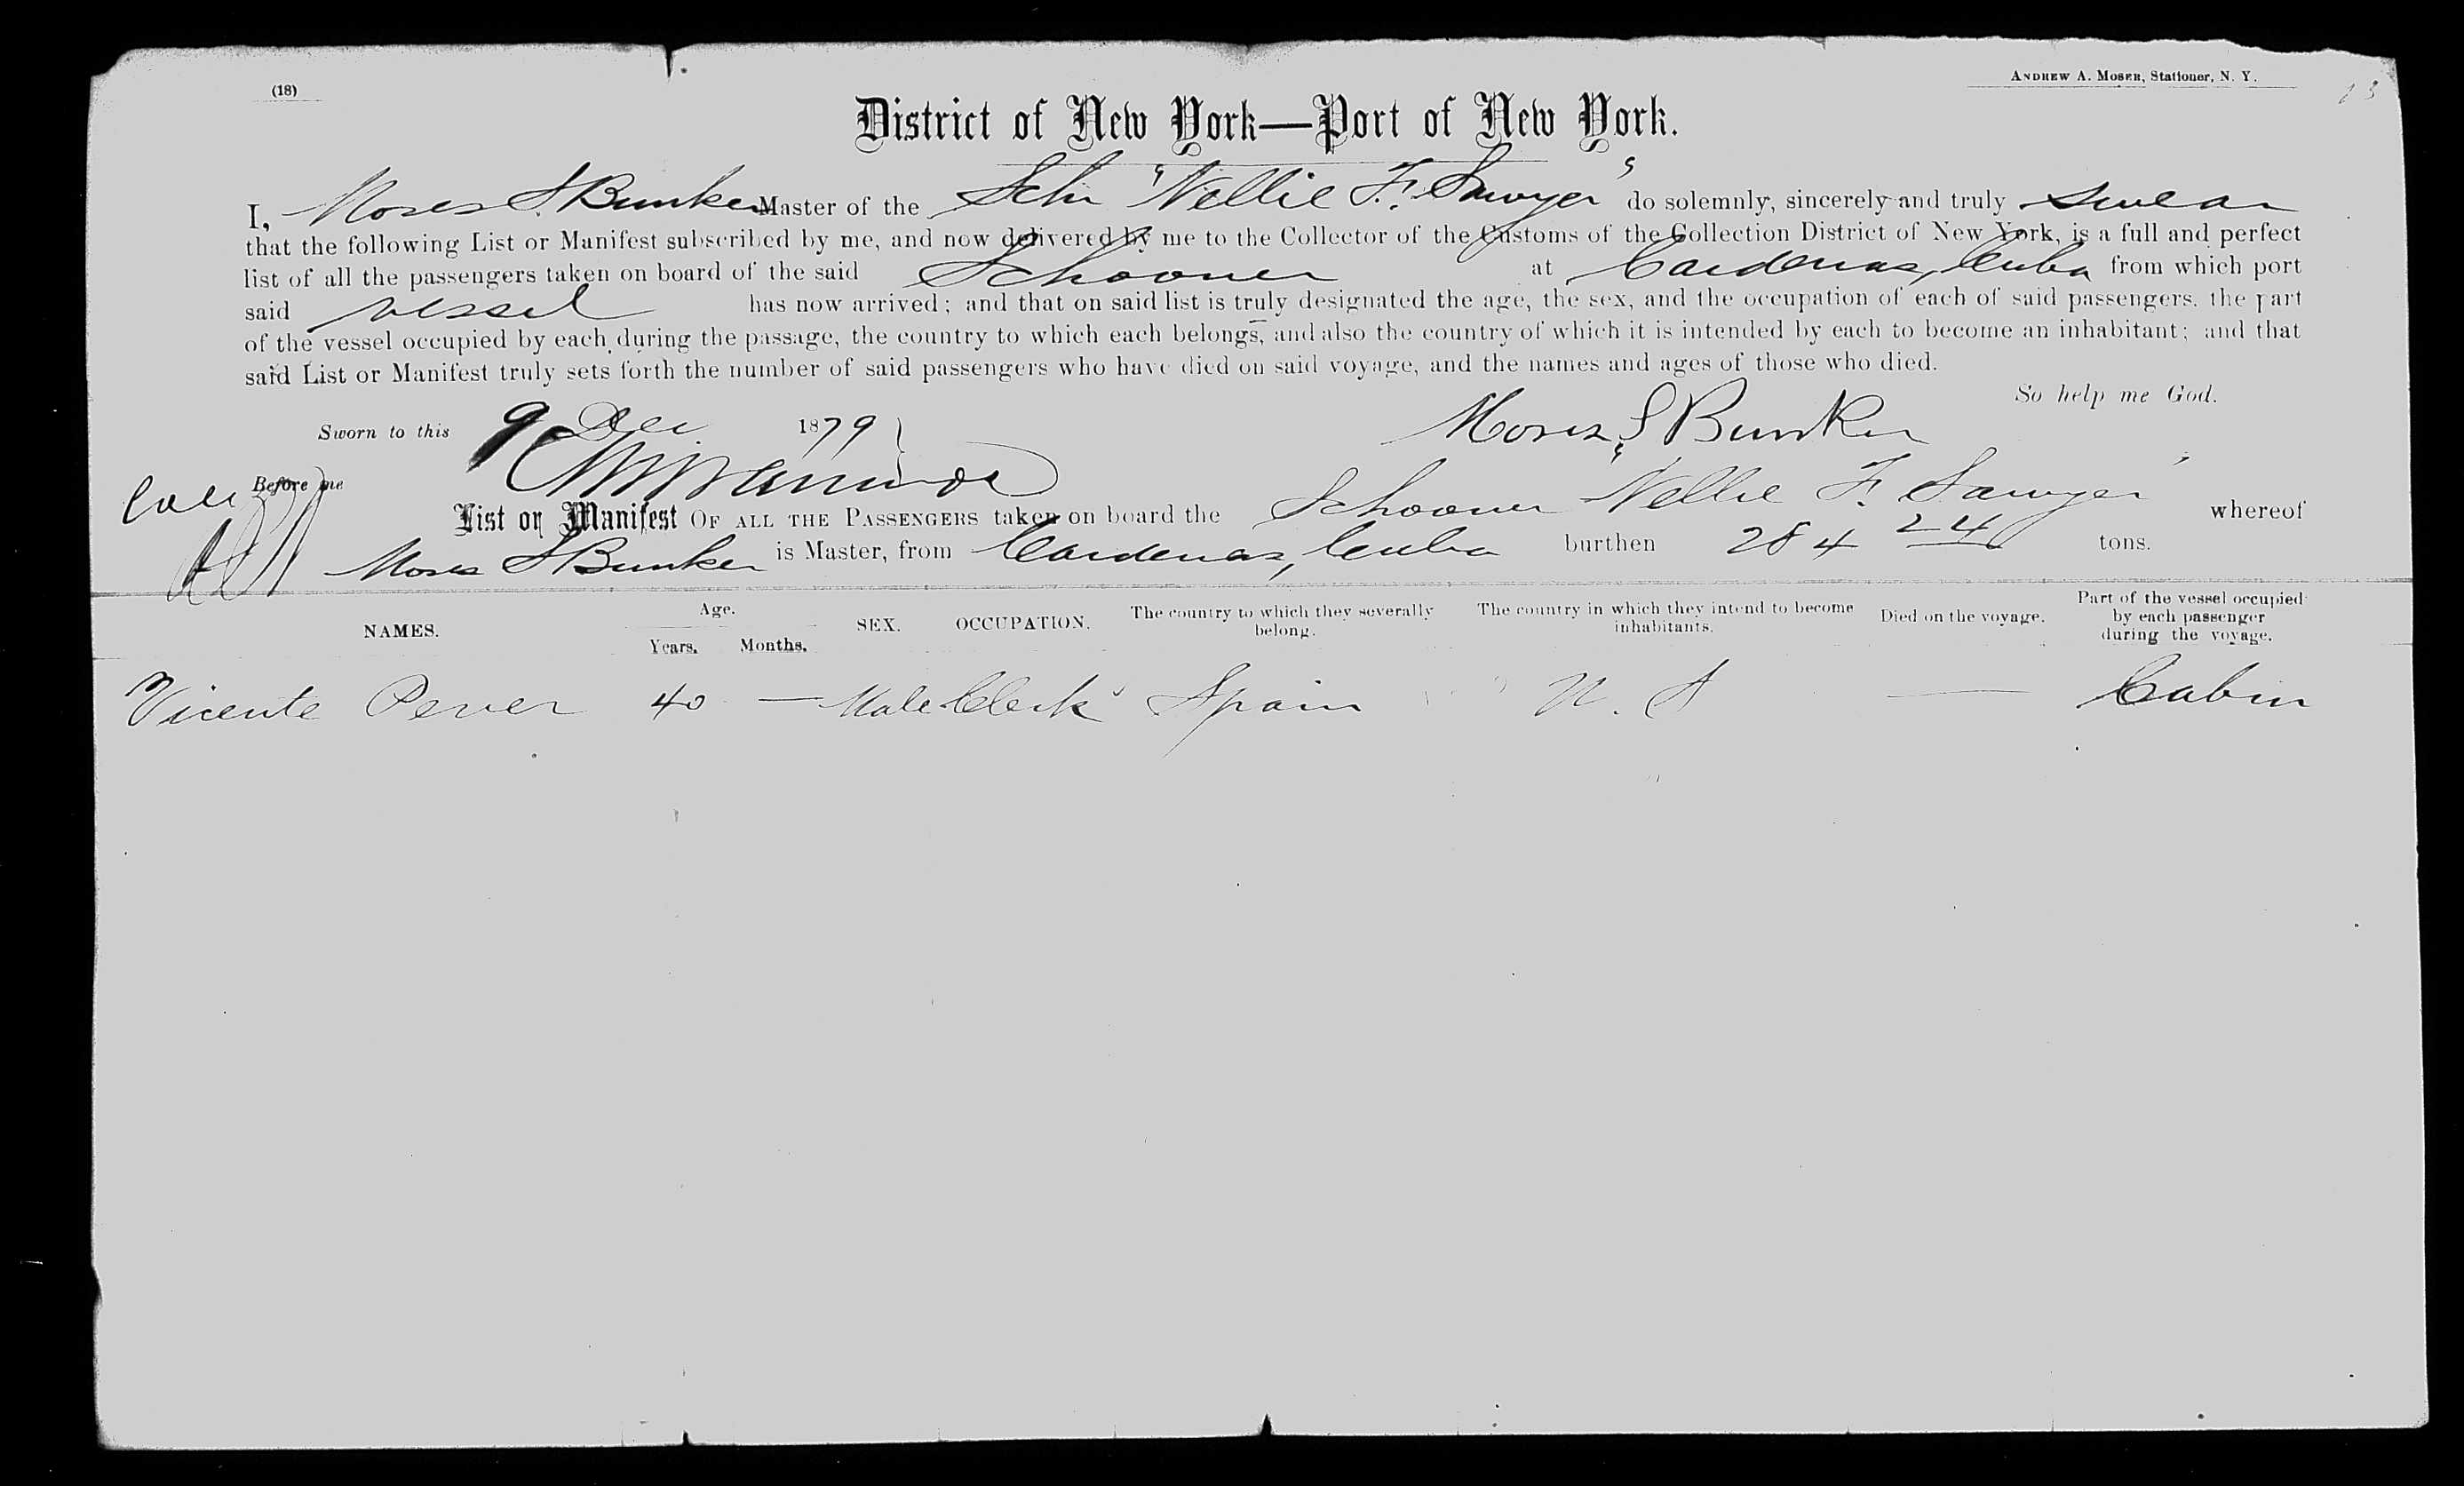 (18)
ANDREW A. MOSER, Stationer, N. Y.
District of New York—Port of New York.
I, Moses S. Bunker Master of the Schr "Nellie F. Sawyer" do solemnly, sincerely and truly swear
that the following List or Manifest subscribed by me, and now delivered by me to the Collector of the Customs of the Collection District of New York, is a full and perfect
list of all the passengers taken on board of the said Schooner at Cardenas, Cuba from which port
said vessel has now arrived; and that on said list is truly designated the age, the sex, and the occupation of each of said passengers, the part
of the vessel occupied by each during the passage, the country to which each belongs, and also the country of which it is intended by each to become an inhabitant; and that
said List or Manifest truly sets forth the number of said passengers who have died on said voyage, and the names and ages of those who died.
So help me God.
Sworn to this 9 Dec 1879
Moses S Bunker
Before me
List or Manifest OF ALL THE PASSENGERS taken on board the Schooner "Nellie F. Sawyer" whereof
Moses S Bunker is Master, from Cardenas, Cuba burthen 284 24 tons.
NAMES. Age. Years. Months. SEX. OCCUPATION. The country to which they severally belong. The country in which they intend to become inhabitants. Died on the voyage. Part of the vessel occupied by each passenger during the voyage.
Vicente Perer 40 — Male Clerk Spain U. S — Cabin